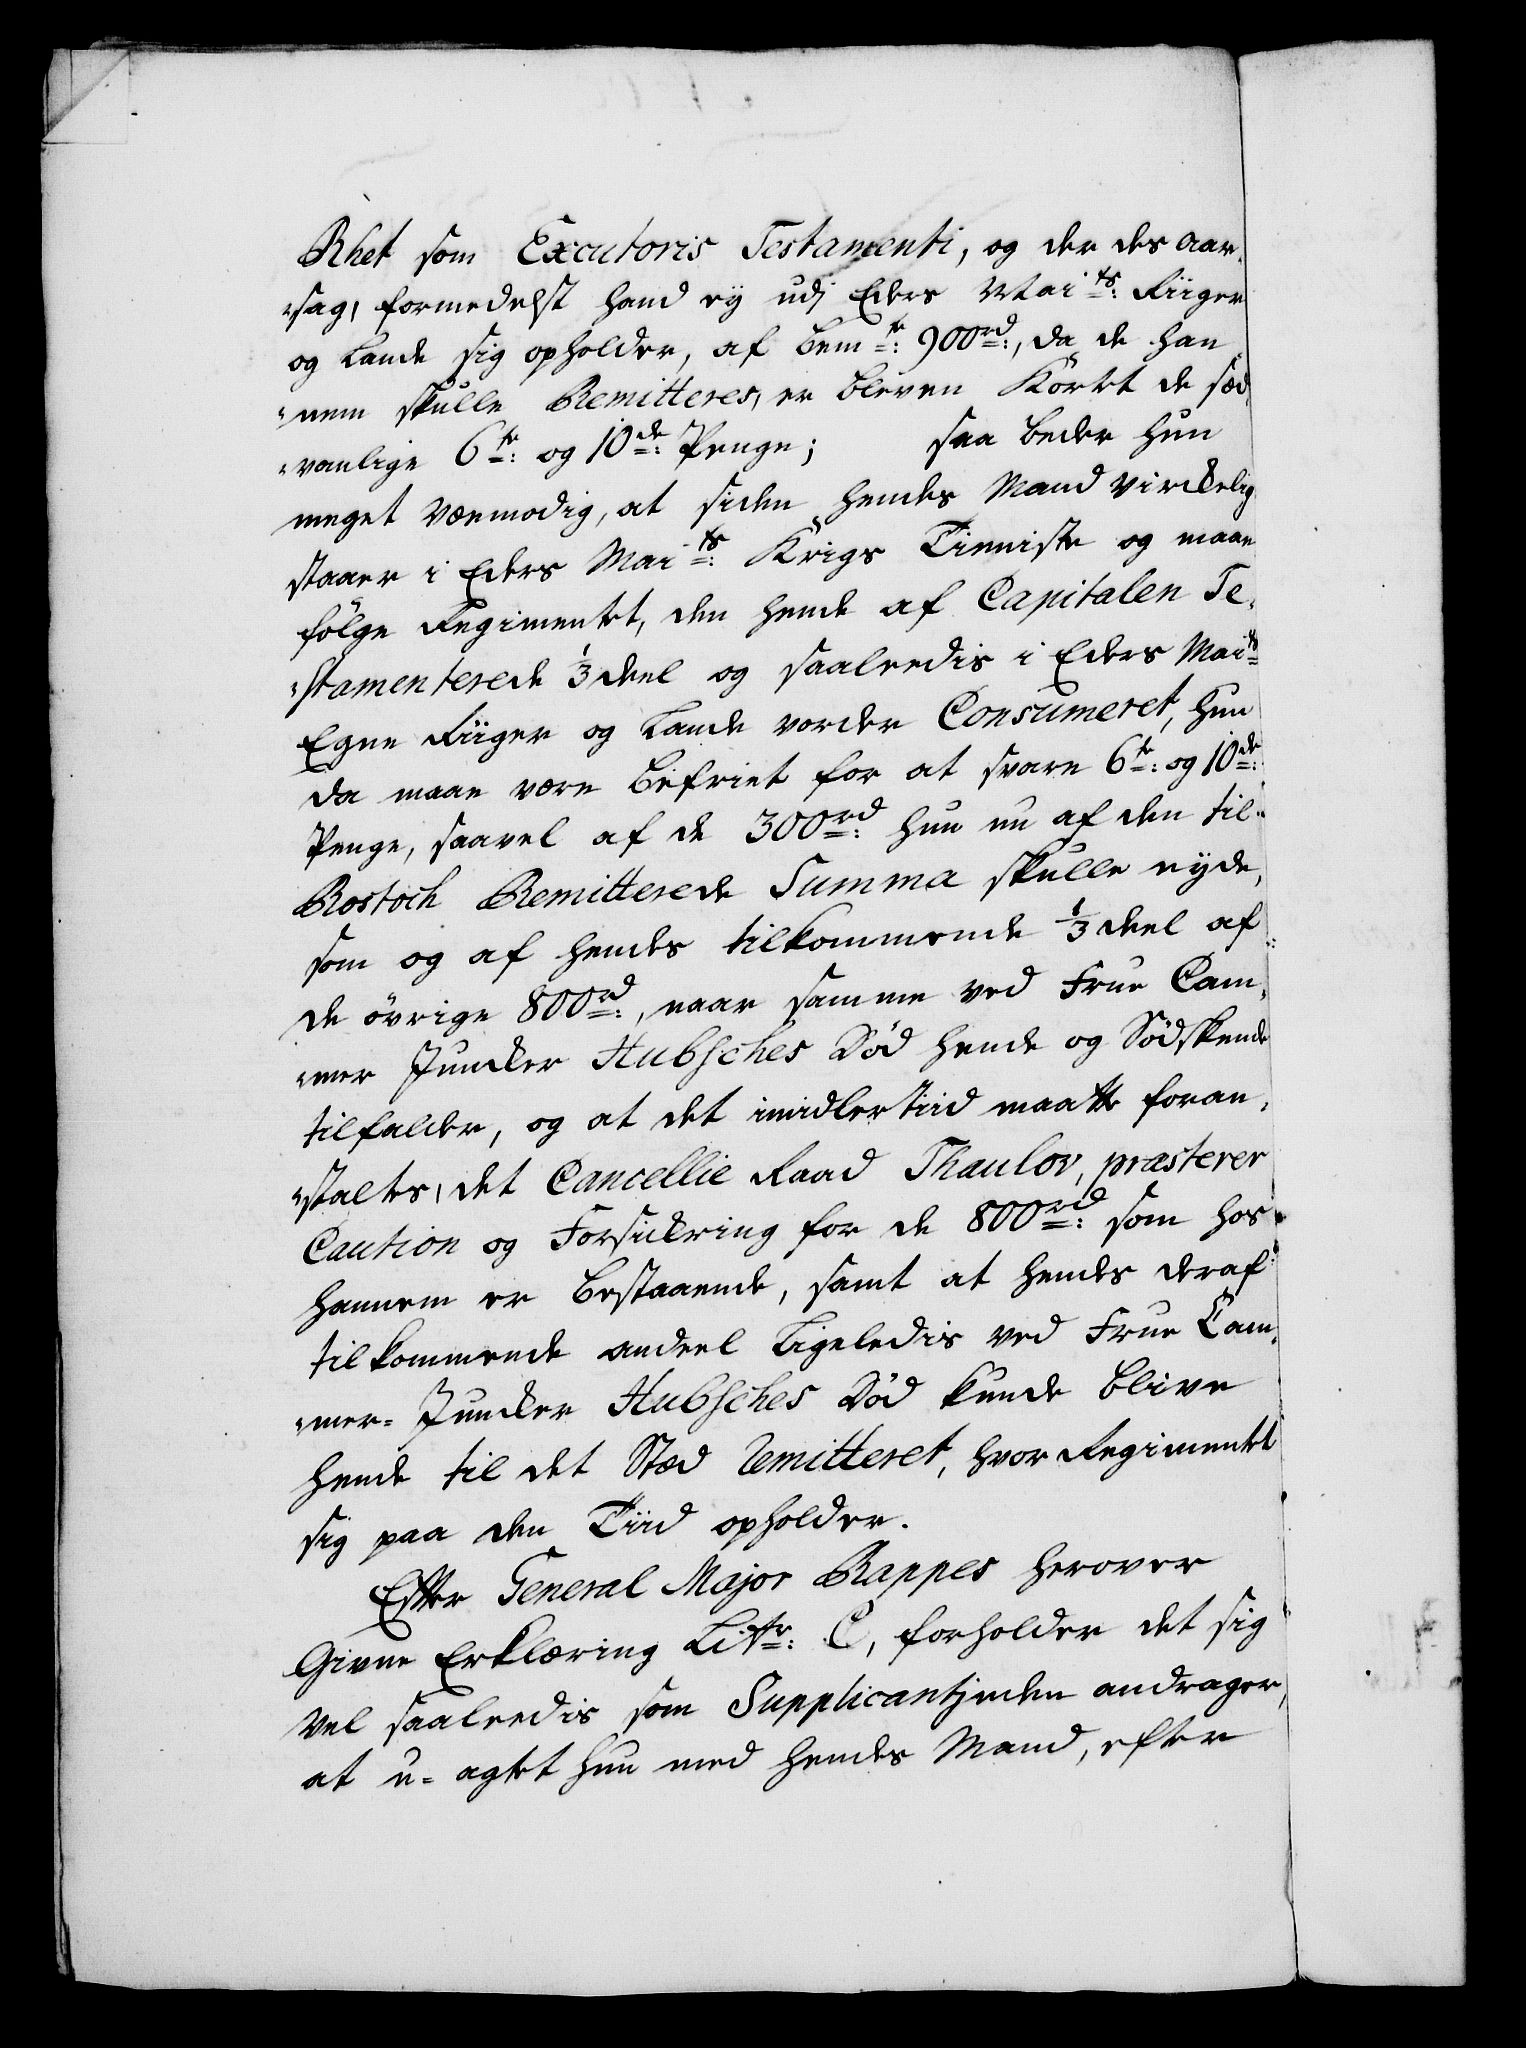 Rhet som Excutoris Testamenti, og der des Aar,
"sag, formedelst hand ey udj Eders Mai ts: Riiger
og Lande sig opholder, af bem te: 900 rd:, da de han,
"nem skulle Remitteres, er bleven Kortet de sæd,
"vanlige 6 te: og 10 de: Penge; saa beder hun
meget væmodig, at siden hendes Mand virckelig
staaer i Eders Mai ts: Krigs Tienniste og maae
følge Regimentet, den hende af Capitalen Te,
"stamenterede 1/3 deel og saaledis i Eders Mai ts
Egne Riiger og Lande vorder Consumeret, hun
da maae være befriet for at svare 6 te: og 10 de:
Penge, saavel af de 300 rd: hun nu af den til
Rostock Remitterede Summa skulle nyde,
som og af hendes tilkommende 1/3 deel af
de øvrige 800 rd:, naar samme ved Frue Cam,
"mer Juncker Hubsches Død hende og Sødskende
tilfalder, og at det imidlertiid maatte foran,
"staltes, det Cancellie Raad Thaulov, præsterer
Caution og Forsickring for de 800 rd: som hos
hannem er bestaaende, samt at hendes deraf
tilkommende andeel Ligeledis ved Frue Cam,
"mer- Juncker Hubsches Død kunde blive
hende til det Stæd remitteret, hvor Regimentet
sig paa den Tiid opholder.
Efter General Major Rappes herover
Givne Erklæring Litr: C, forholder det sig
vel saaledis som Supplicantinden andrager,
at u- agtet hun med hendes Mand, efter